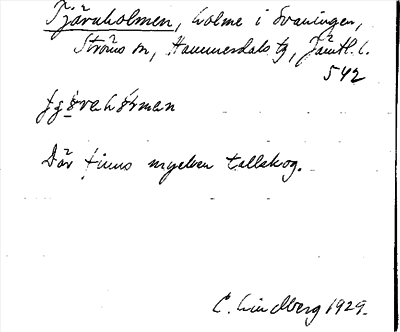 Tjärnholmen, holme i Svaningen,
Ströms sn, Hammerdals tg, Jämtl. l.
542
Där finns mycken tallskog.
C. Lindberg 1929.